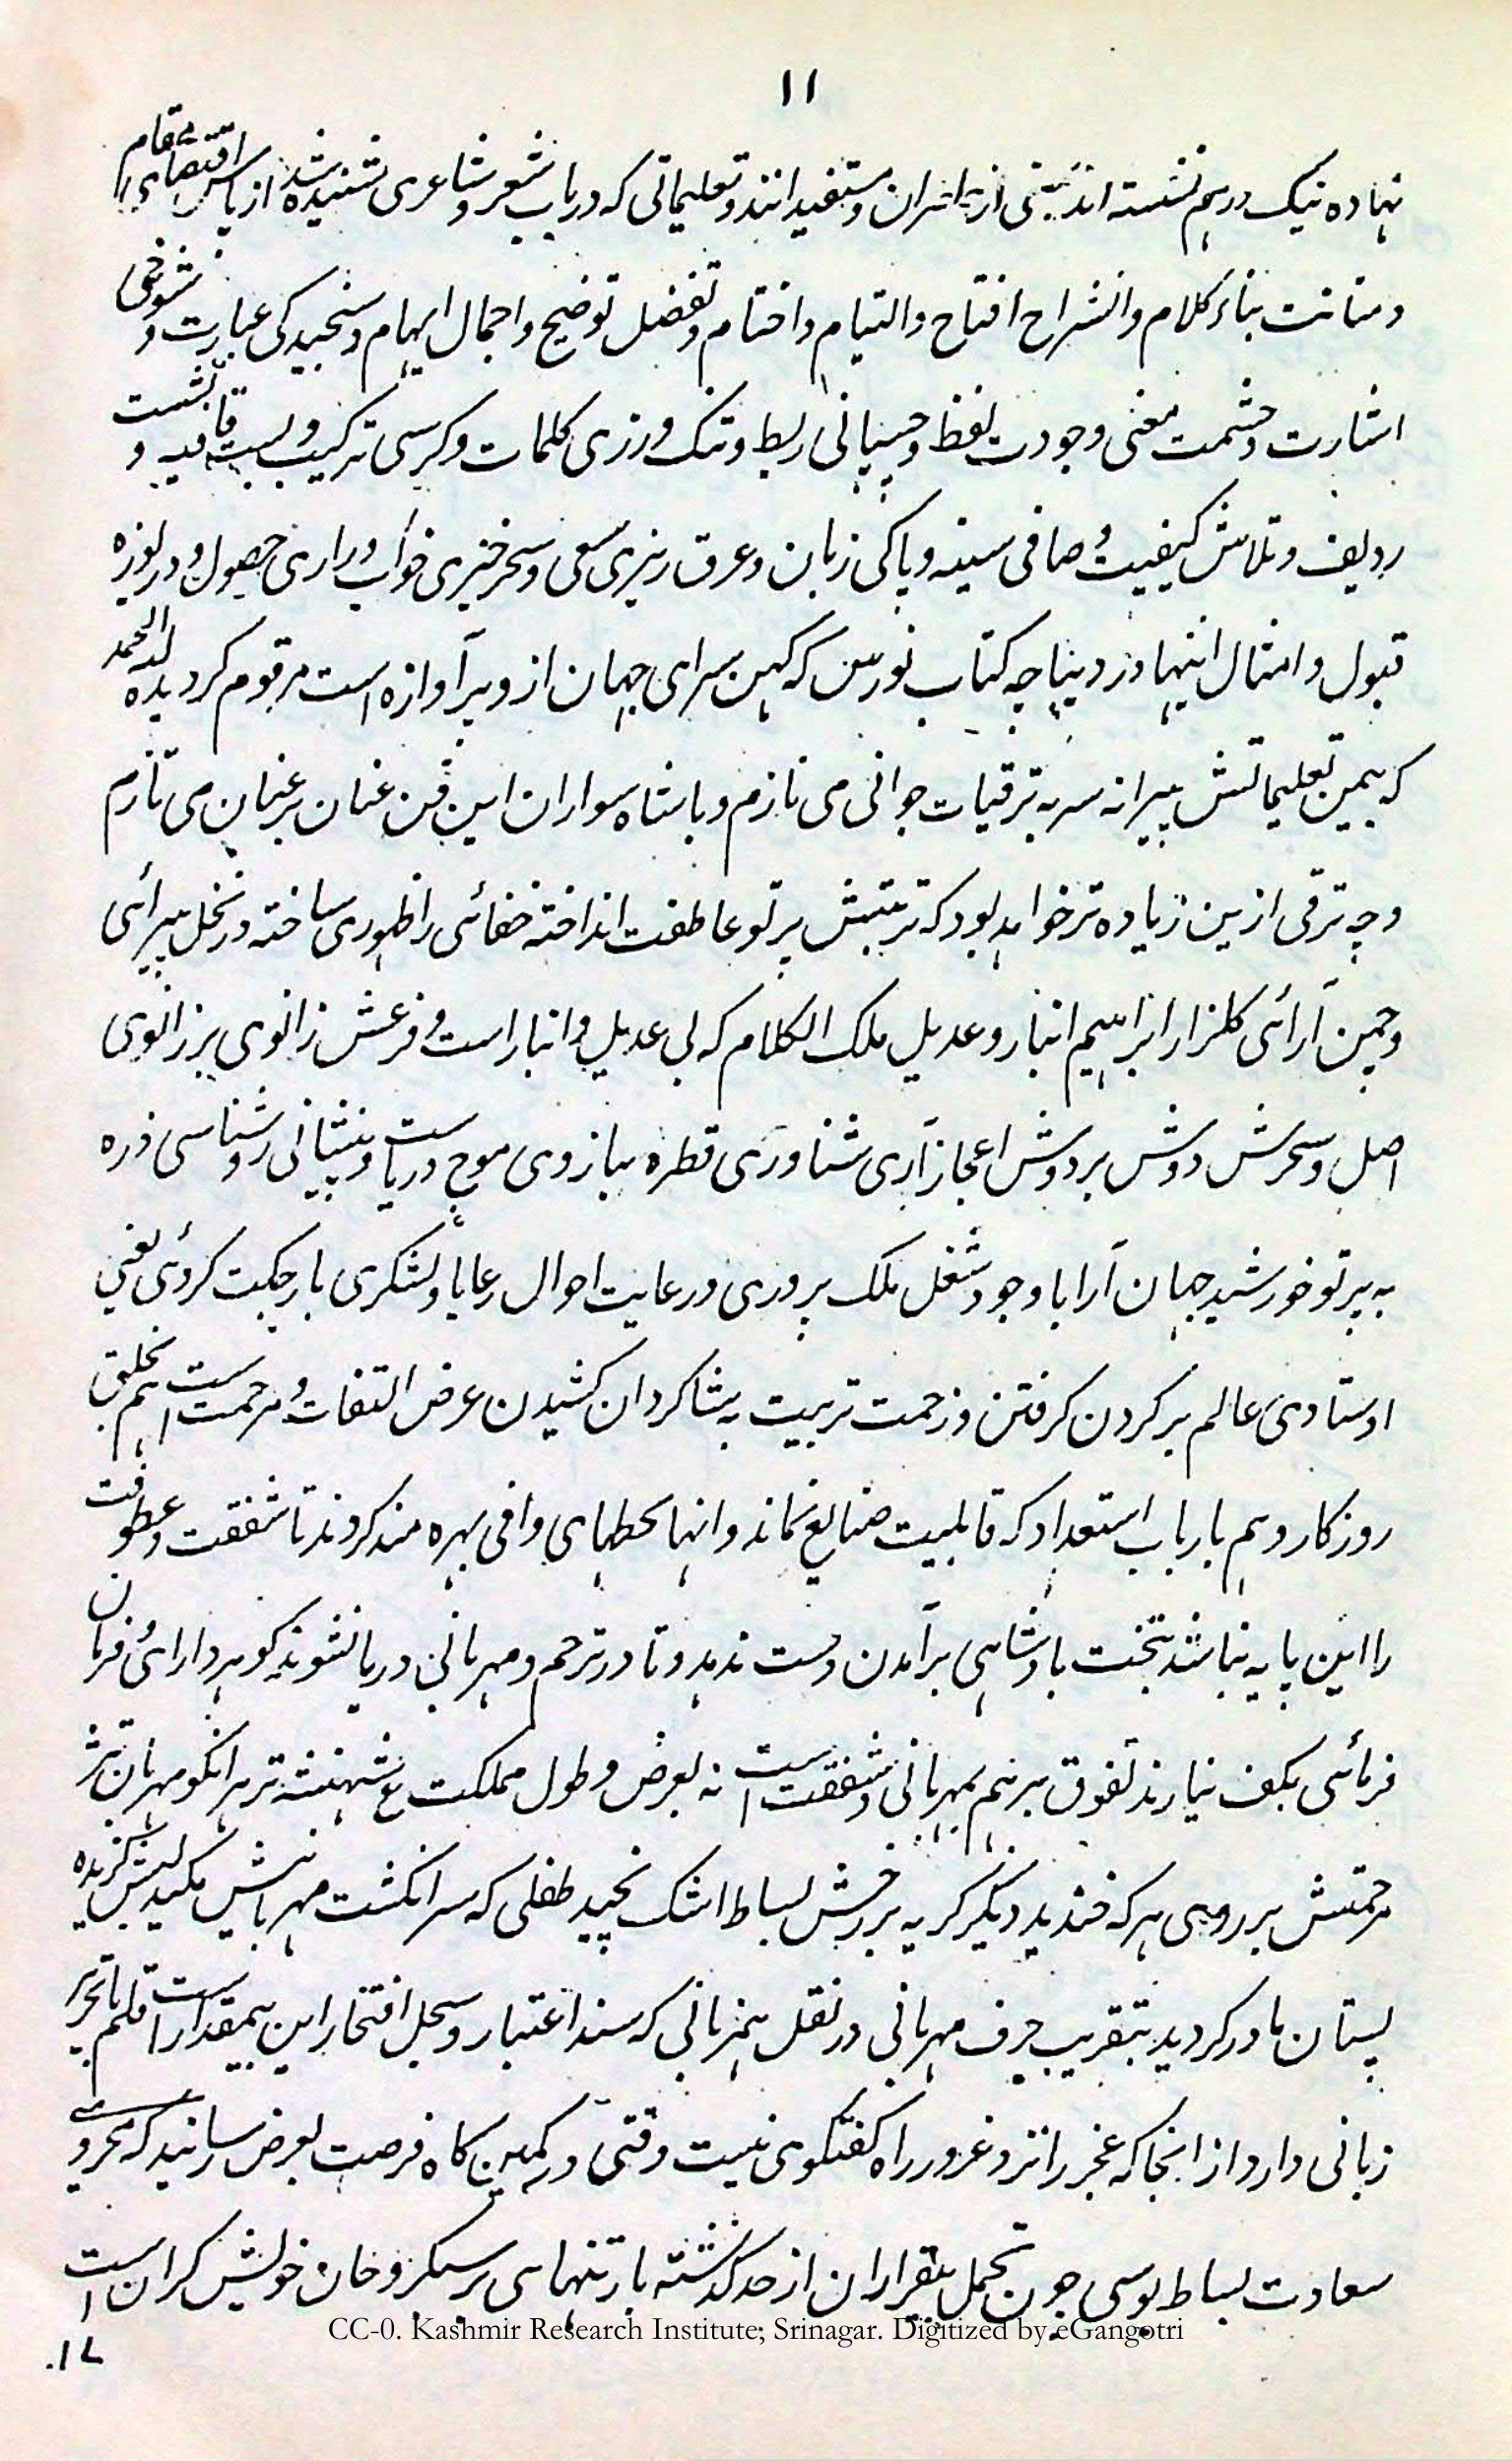 ۱۱
نهاده نیک درهم نشسته اند بیتی از و مستفیدانند و تعلیماتی که در باب شعر و شاعری شنیده شد از پاس اقتضای مقام
و متانت بناء کلام و انشراح افتتاح و التیام و اختتام و تفضل توضیح و اجمال ایهام و سنجیدکی عبارت و شوخی
اشارت و حشمت معنی و جودت لفظ و چسپانی ربط و تنک ورزی کلمات و کرسی ترکیب و بست قافیه و نشست
ردیف و تلاش کیفیت و صافی سینه و پاکی زبان و عرق ریزی سعی و سحرخیزی خواب و زاری حصول و دریوزه
قبول و امثال اینها در دیباچه کتاب نورس که کهن سرای جهان از و پر آوازه است مرقوم کردیده لله الحمد
که بیمن تعلیماتش پیرانه سر به ترقیات جوانی می نازم و با شاه سواران این فن عنان بر عنان می تازم
و چه ترقی ازین زیاده تر خواهد بود که تربیتش پرتو عاطفت انداخته خفائی را ظهوری ساخته در نخل پیرائی
و چمن آرائی کلزار ابراهیم انباز و عدیل ملک الکلام که بی عدیل و انباز است و فرعش زانوی بر زانوی
اصل و سحرش دوش بر دوش اعجاز آری شناوری قطره ببازوی موج دریاست و پیشانی روشناسی ذره
به پرتو خورشید جهان آرا با وجود شغل ملک پروری و رعایت احوال رعایا و لشکری بار جکت کروئی یعنی
اوستادی عالم بر کردن کرفتن و زحمت تربیت به شاکردان کشیدن عرض التفات و مرحمت است هم بخلق
روزکار و هم بارباب استعداد که قابلیت ضایع نماند و انها بحظهای وافی بهره مند کردند تا شفقت و عطوفت
را این پایه نباشد بتخت بادشاهی برآمدن دست ندهد و تا در ترحم و مهربانی دریا نشوند کوهر دارائی فرمان
فرمائی بکف نیارند تفوق برهم بمهربانی و شفقت است نه بعرض و طول مملکت ع شهنشه تر هر انکو مهربان تر
مرحمتش بر روی هر که خندید دیکر کریه بر رخش بساط اشک نچید طفلی که سر انکشت مهربانیش مکید لبش کزنده
پستان مادر کردید بتقریب حرف مهربانی در نقل همزبانی که سند اعتبار و سجل افتخار این بیمقدار است قلم با تحریر
زبانی دارد از انجا که عجز را نزد غرور راه کفتکوی نیست وقتی در کمین کاه فرصت بعرض رسانید که محرومی
سعادت بساط بوسی چون تحمل بیقراران از حد کذشته بار تنهای بر سبکروحان خویش کران است
۱۲
CC-0. Kashmir Research Institute, Srinagar. Digitized by eGangotri